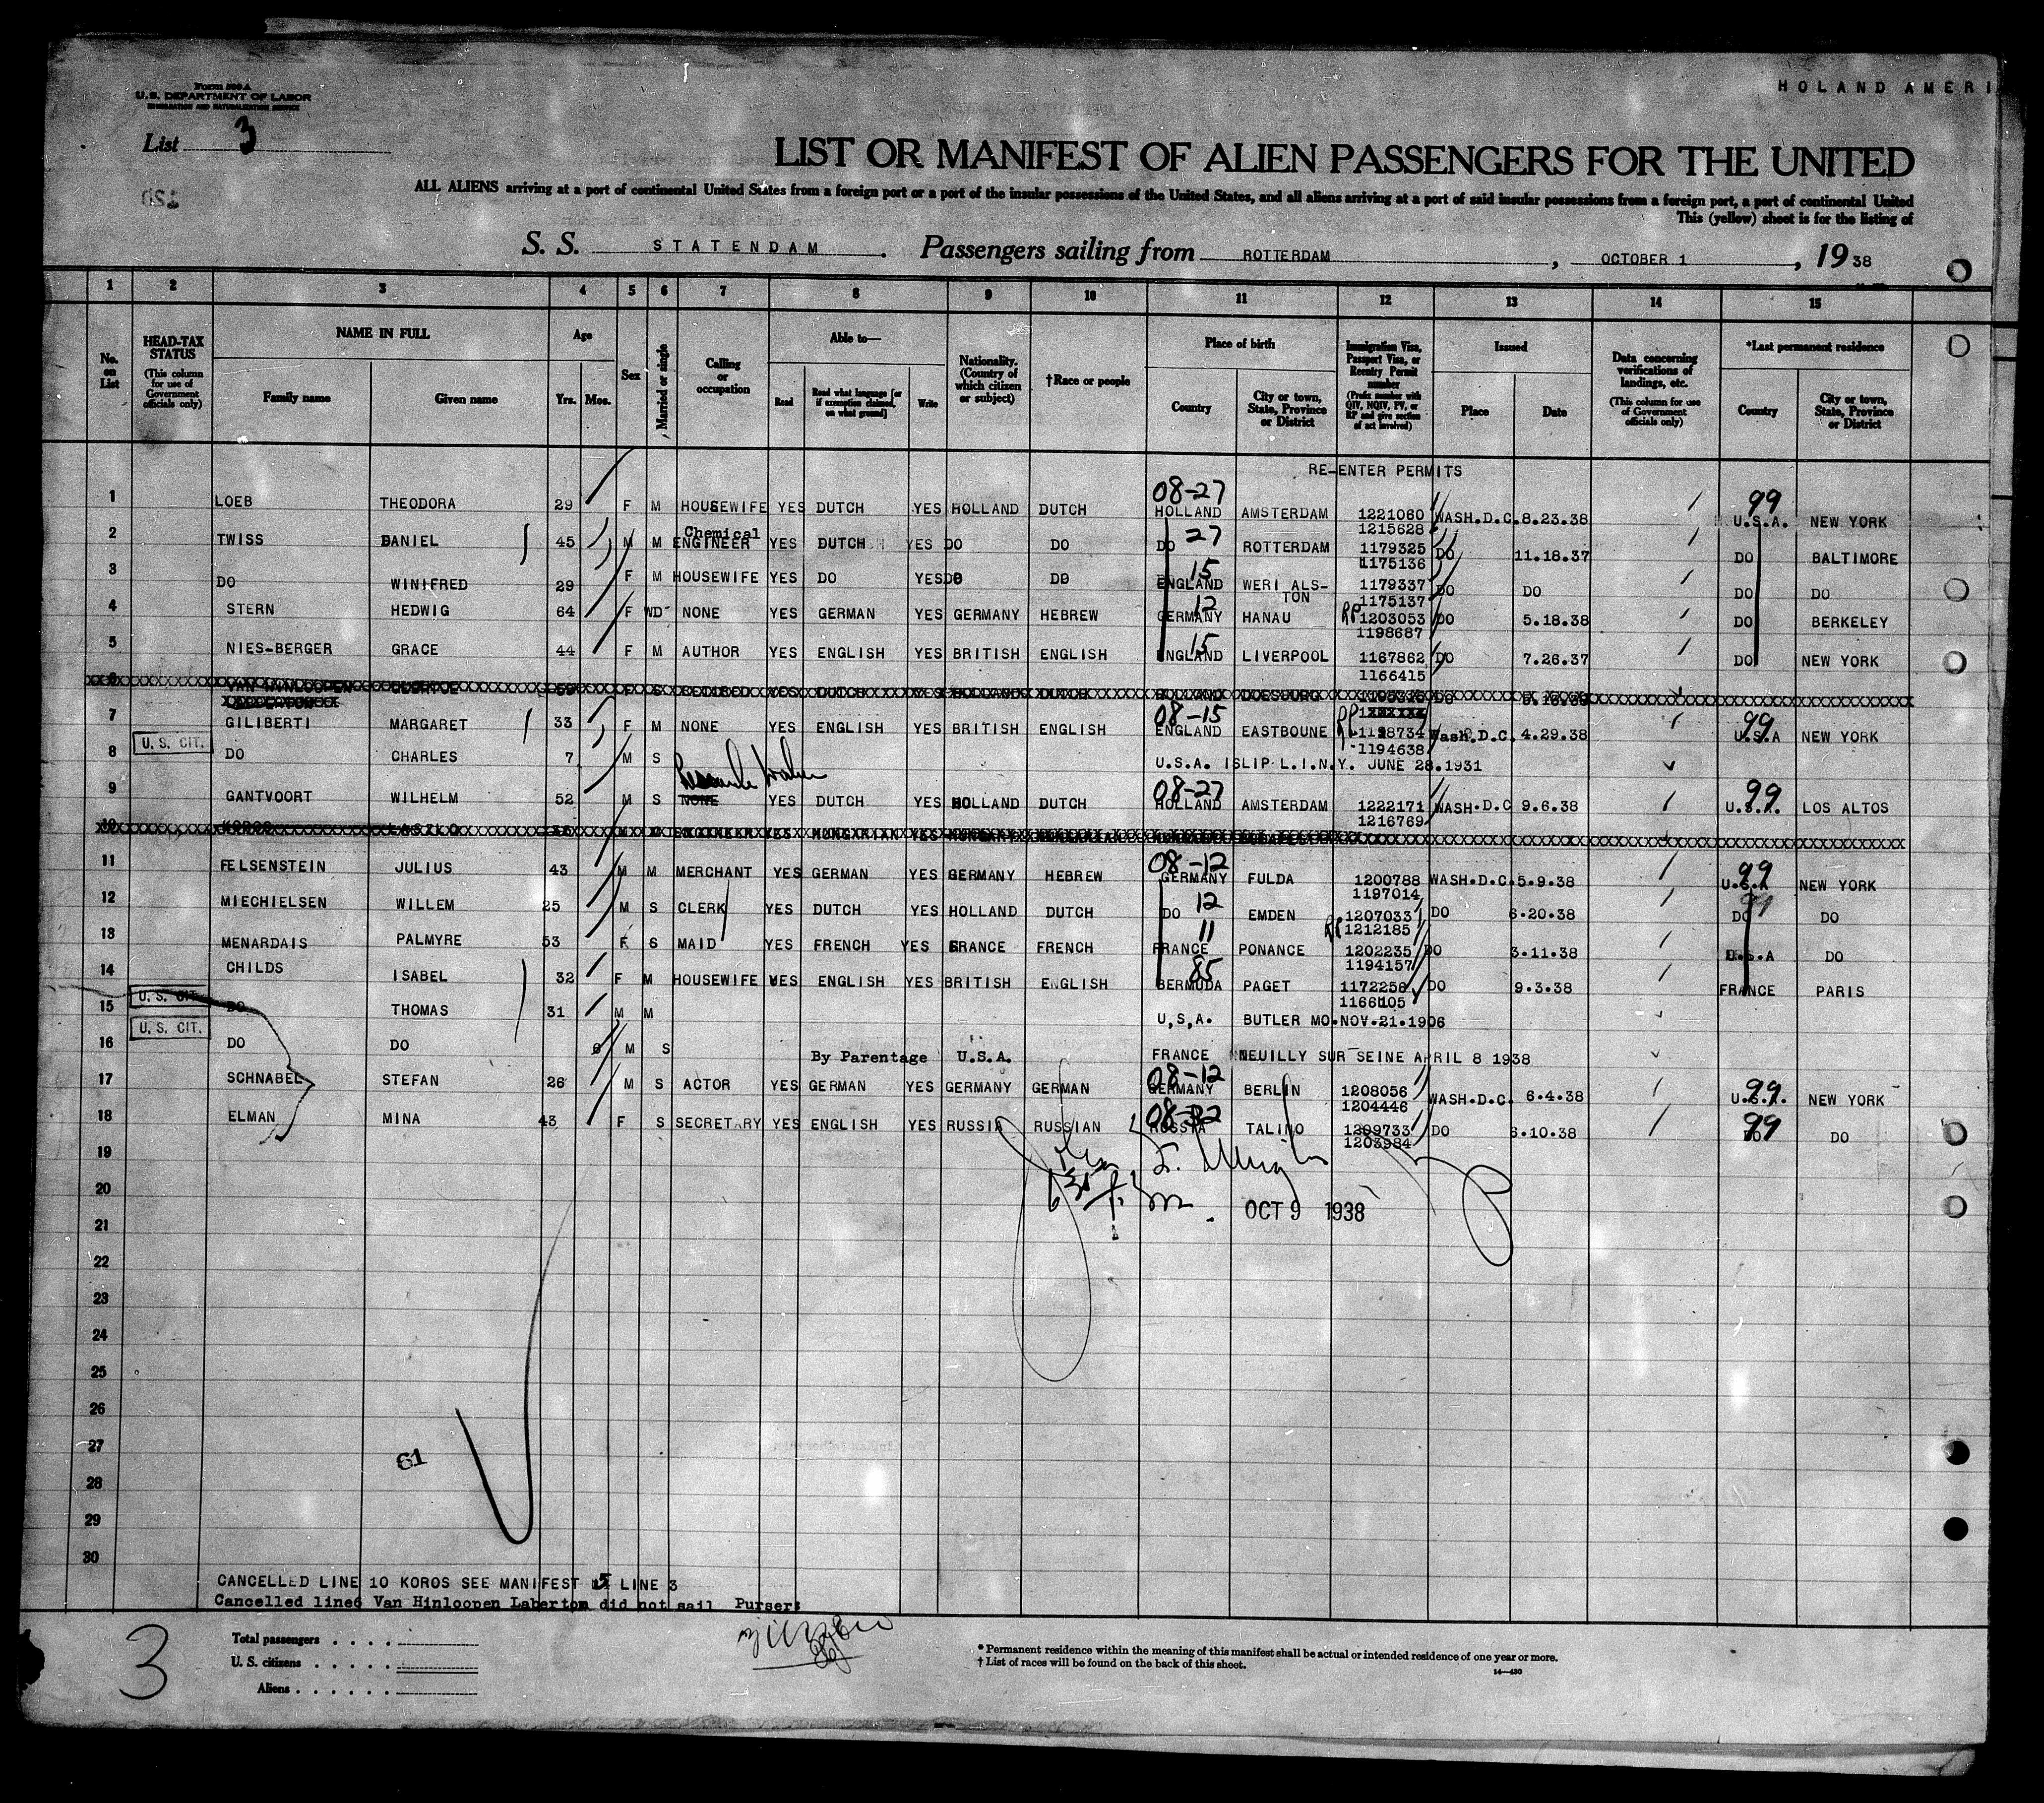 Form 500 A
U.S. DEPARTMENT OF LABOR
IMMIGRATION AND NATURALIZATION SERVICE
HOLAND AMERI
List 3
LIST OR MANIFEST OF ALIEN PASSENGERS FOR THE UNITED
ALL ALIENS arriving at a port of continental United States from a foreign port or a port of the insular possessions of the United States, and all aliens arriving at a port of said insular possessions from a foreign port, a port of continental United
This (yellow) sheet is for the listing of
S. S. STATENDAM. Passengers sailing from ROTTERDAM, OCTOBER 1, 1938
1 2 3 4 5 6 7 8 9 10 11 12 13 14 15
No. on List
HEAD-TAX STATUS (This column for use of Government officials only)
NAME IN FULL Family name Given name
Age Yrs. Mos.
Sex
Married or single
Calling or occupation
Able to— Read Read what language [or if exemption claimed, on what ground] Write
Nationality. (Country of which citizen or subject)
†Race or people
Place of birth Country City or town, State, Province or District
Immigration Visa, Passport Visa, or Reentry Permit number (Prefix number with QIV, NQIV, PV, or RP and give section of act involved)
Issued Place Date
Data concerning verifications of landings, etc. (This column for use of Government officials only)
*Last permanent residence Country City or town, State, Province or District
RE-ENTER PERMITS
1 LOEB THEODORA 29 F M HOUSEWIFE YES DUTCH YES HOLLAND DUTCH 08-27 HOLLAND AMSTERDAM 1221060 1215628 WASH.D.C. 8.23.38 99 U.S.A. NEW YORK
2 TWISS DANIEL 45 M M Chemical ENGINEER YES DUTCH YES DO DO DO 27 ROTTERDAM 1179325 1175136 DO 11.18.37 DO BALTIMORE
3 DO WINIFRED 29 F M HOUSEWIFE YES DO YES DO DO 15 ENGLAND WERI ALS-TON 1179337 1175137 DO DO DO DO
4 STERN HEDWIG 64 F WD NONE YES GERMAN YES GERMANY HEBREW 12 GERMANY HANAU RP 1203053 1198687 DO 5.18.38 DO BERKELEY
5 NIES-BERGER GRACE 44 F M AUTHOR YES ENGLISH YES BRITISH ENGLISH 15 ENGLAND LIVERPOOL 1167862 1166415 DO 7.26.37 DO NEW YORK
6 VAN HINLOOPEN
7 GILIBERTI MARGARET 33 F M NONE YES ENGLISH YES BRITISH ENGLISH 08-15 ENGLAND EASTBOUNE RP 1198734 1194638 Wash.D.C. 4.29.38 99 U.S.A NEW YORK
U. S. CIT.
8 DO CHARLES 7 M S U.S.A. ISLIP L.I.N.Y. JUNE 28.1931
9 GANTVOORT WILHELM 52 M S NONE YES DUTCH YES HOLLAND DUTCH 08-27 HOLLAND AMSTERDAM 1222171 1216769 WASH.D.C 9.6.38 99 U.S.A. LOS ALTOS
10 KOROS LASZLO M M ENGINEER YES HUNGARIAN YES HUNGARY
11 FELSENSTEIN JULIUS 43 M M MERCHANT YES GERMAN YES GERMANY HEBREW 08-12 GERMANY FULDA 1200788 1197014 WASH.D.C. 5.9.38 99 U.S.A NEW YORK
12 MIECHIELSEN WILLEM 25 M S CLERK YES DUTCH YES HOLLAND DUTCH DO 12 EMDEN 1207033 1212185 DO 6.20.38 DO DO
13 MENARDAIS PALMYRE 53 F S MAID YES FRENCH YES FRANCE FRENCH 11 FRANCE PONANCE RP 1202235 1194157 DO 3.11.38 U.S.A DO
14 CHILDS ISABEL 32 F M HOUSEWIFE YES ENGLISH YES BRITISH ENGLISH 85 BERMUDA PAGET 1172256 1166105 DO 9.3.38 FRANCE PARIS
U. S. CIT.
15 DO THOMAS 31 M M U,S,A. BUTLER MO.NOV.21.1906
U. S. CIT.
16 DO DO 6 M S By Parentage U.S.A. FRANCE NEUILLY SUR SEINE APRIL 8 1938
17 SCHNABEL STEFAN 26 M S ACTOR YES GERMAN YES GERMANY GERMAN 08-12 GERMANY BERLIN 1208056 1204446 WASH.D.C. 6.4.38 99 U.S.A. NEW YORK
18 ELMAN MINA 43 F S SECRETARY YES ENGLISH YES RUSSIA RUSSIAN 08-32 RUSSIA TALINO 1209733 1203984 DO 6.10.38 99 DO
19
20
21 OCT 9 1938
22
23
24
25
26
27
28
29
30
61
CANCELLED LINE 10 KOROS SEE MANIFEST 5 LINE 3
Cancelled line6 Van Hinloopen Laberton did not sail Pursers
3
Total passengers
U. S. citizens
Aliens
* Permanent residence within the meaning of this manifest shall be actual or intended residence of one year or more.
† List of races will be found on the back of this sheet.
14—430